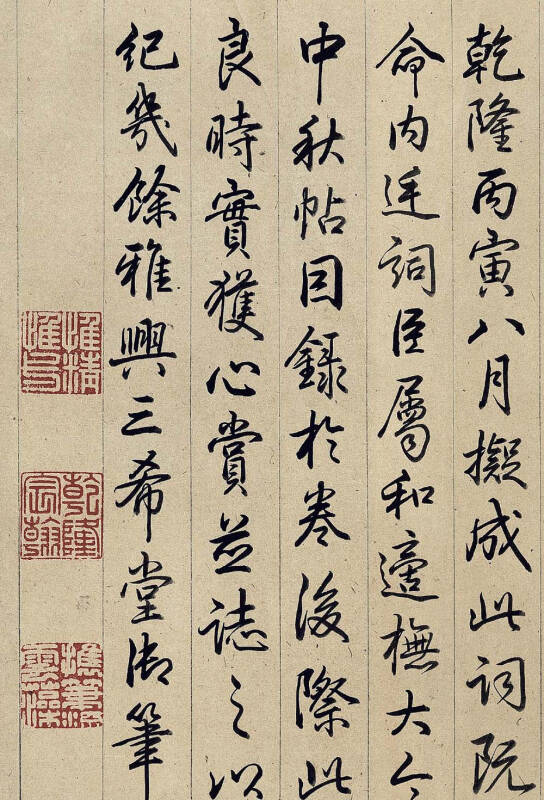 乾隆丙寅八月擬成此詞既
命内廷詞臣屬和適橅大令
中秋帖因錄於卷後際此
良時實獲心賞並誌之以
紀幾餘雅興三希堂御筆
惟精惟
乾隆宸翰